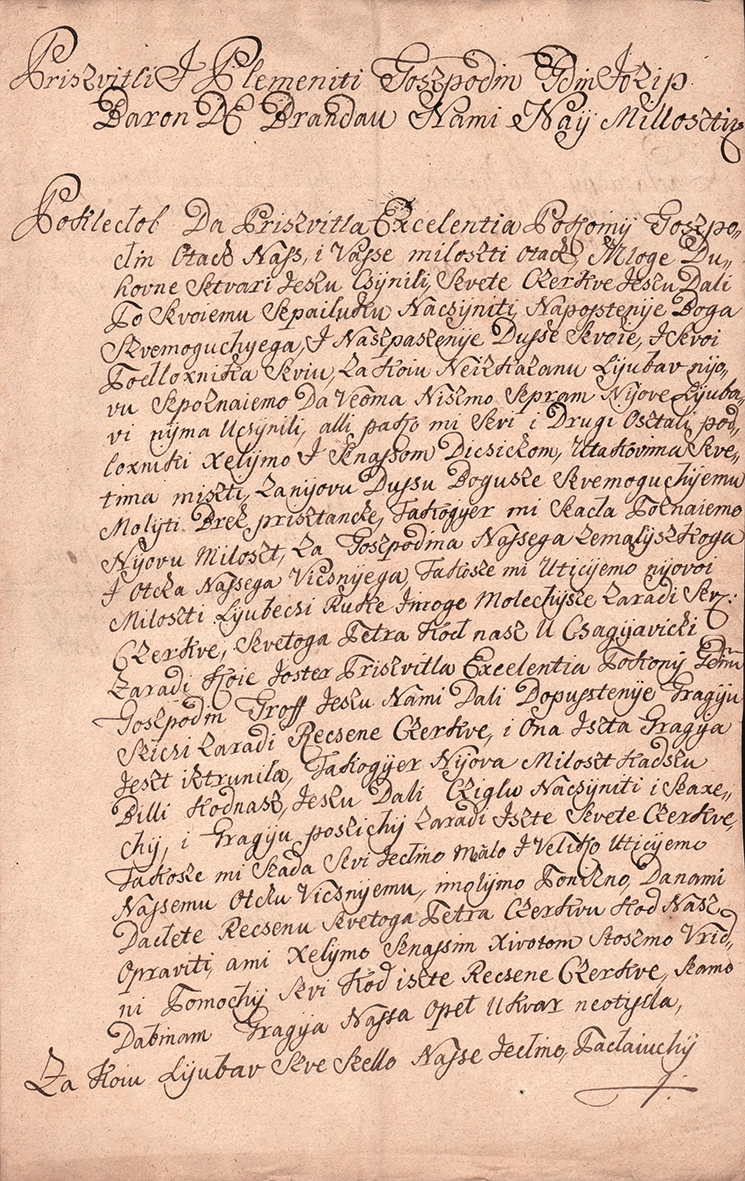 Priszvitli I Plemeniti Goszpodin Gdin Jozip
Baron DE Brandau Nami Naÿ Millosztiv
Pokledob Da Priszvitla Excelentia Pokkoinÿ Goszpo-
din Otacz Nass, i Vasse miloszti otacz, Mloge Du-
hovne Sztvari Jeszu Csÿnili, Szvete Czerkve Jeszu Dali
Po Szvoiemu Szpailuku Nacsÿniti, Naposstenije Boga
Szvemoguchÿega, I Naszpaszenije Dusse Szvoie, I Szvoi
Podloxnika Szviu, Za Koiu Neizkazanu Lÿubav nÿo-
vu Szpoznaiemo Da Veoma Niszmo Szpram Nÿove Lÿuba-
vi nÿma Ucsÿnili, alli pakko mi Szvi i Drugi Osztali pod-
loxniki xelÿmo I Sznassom Dicsickom, Utakovima Szve-
tima miszti, Zanÿovu Dussu Bogusze Szvemoguchÿemu
Molÿti Brez prisztancze, Takogÿer mi Szada Poznaiemo
Nÿovu Miloszt, Za Goszpodina Nassega Zemalÿszkoga
I Otcza Nassega Vicsnÿega, Takosze mi Uticÿemo nÿovoi
Miloszti Lÿubeczi Ruke Imoge Molechÿsze Zaradi Sz:
Czerkve, Szvetoga Petra Kod nasz U Csagÿavicki
Zaradi Koie Joster Priszvitla Excelentia Pokoinÿ Gdin
Goszpodin Groff Jeszu Nami Dali Dopusstenije Gragÿu
Sziczi Zaradi Recsene Czerkve, i Ona Iszta Gragÿa
Jeszt isztrunila, Takogÿer Nÿova Miloszt Kadszu
Billi Kodnasz, Jeszu Dali Cziglu Nacsÿniti i Szaxe-
chÿ, i Gragÿu poszichÿ Zaradi Iszte Szvete Czerkve,
Takosze mi Szada Szvi Jedino Malo I Veliko Uticÿemo
Nassemu Otczu Vicsnÿemu, imolÿmo Ponizno, Danami
Dadete Recsenu Szvetoga Petra Czerkvu Kod Nasz
Opraviti, ami xelÿmo Sznassim xivotom Sztoszmo Vrid-
ni Pomochÿ Szvi Kod iszte Recsene Czerkve, Szamo
Dabinam Gragÿa Nassa Opet Ukvar neotisla,
Za Koiu Lÿubav Szve Szello Nasse Jedino, Padaiuchÿ